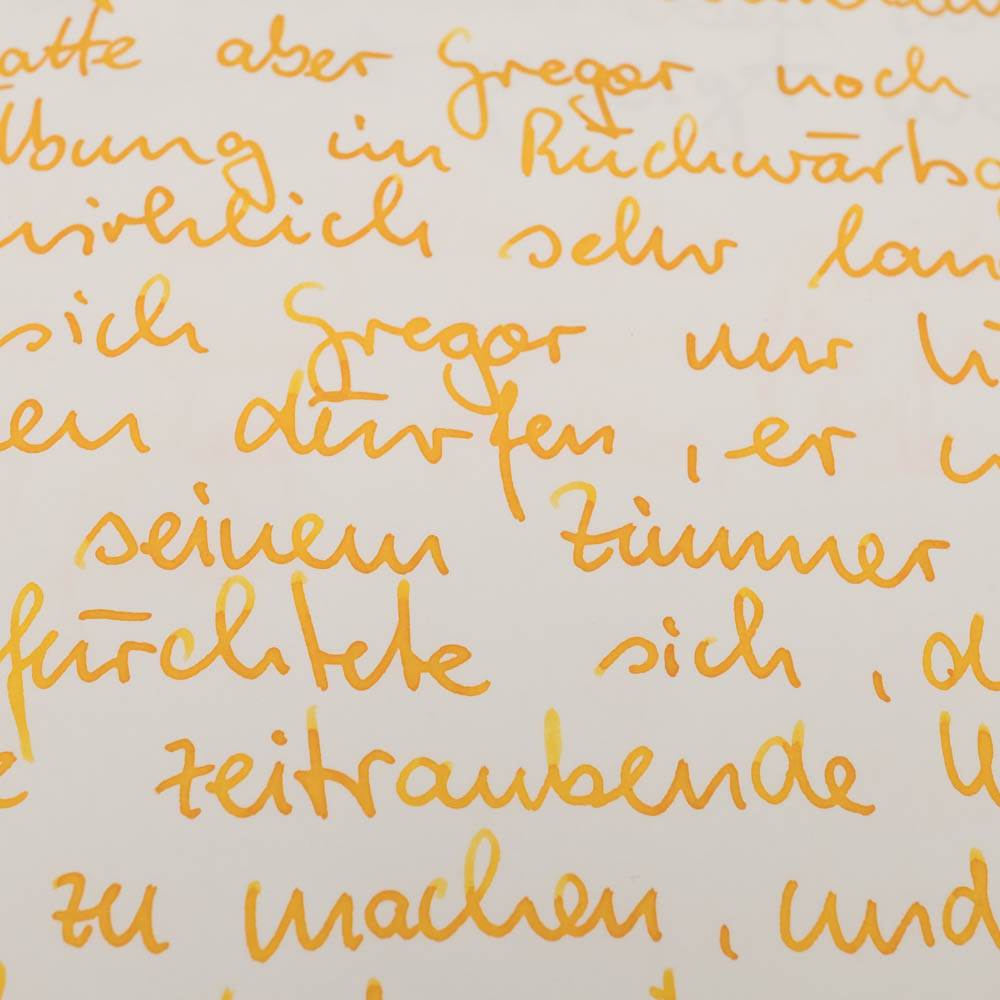 atte aber Gregor noch
Übung im Rückwärtsg
wirklich sehr lan
sich Gregor nur u
en dürfen, er w
seinem Zimmer
fürchtete sich, d
e zeitraubende U
zu machen, und